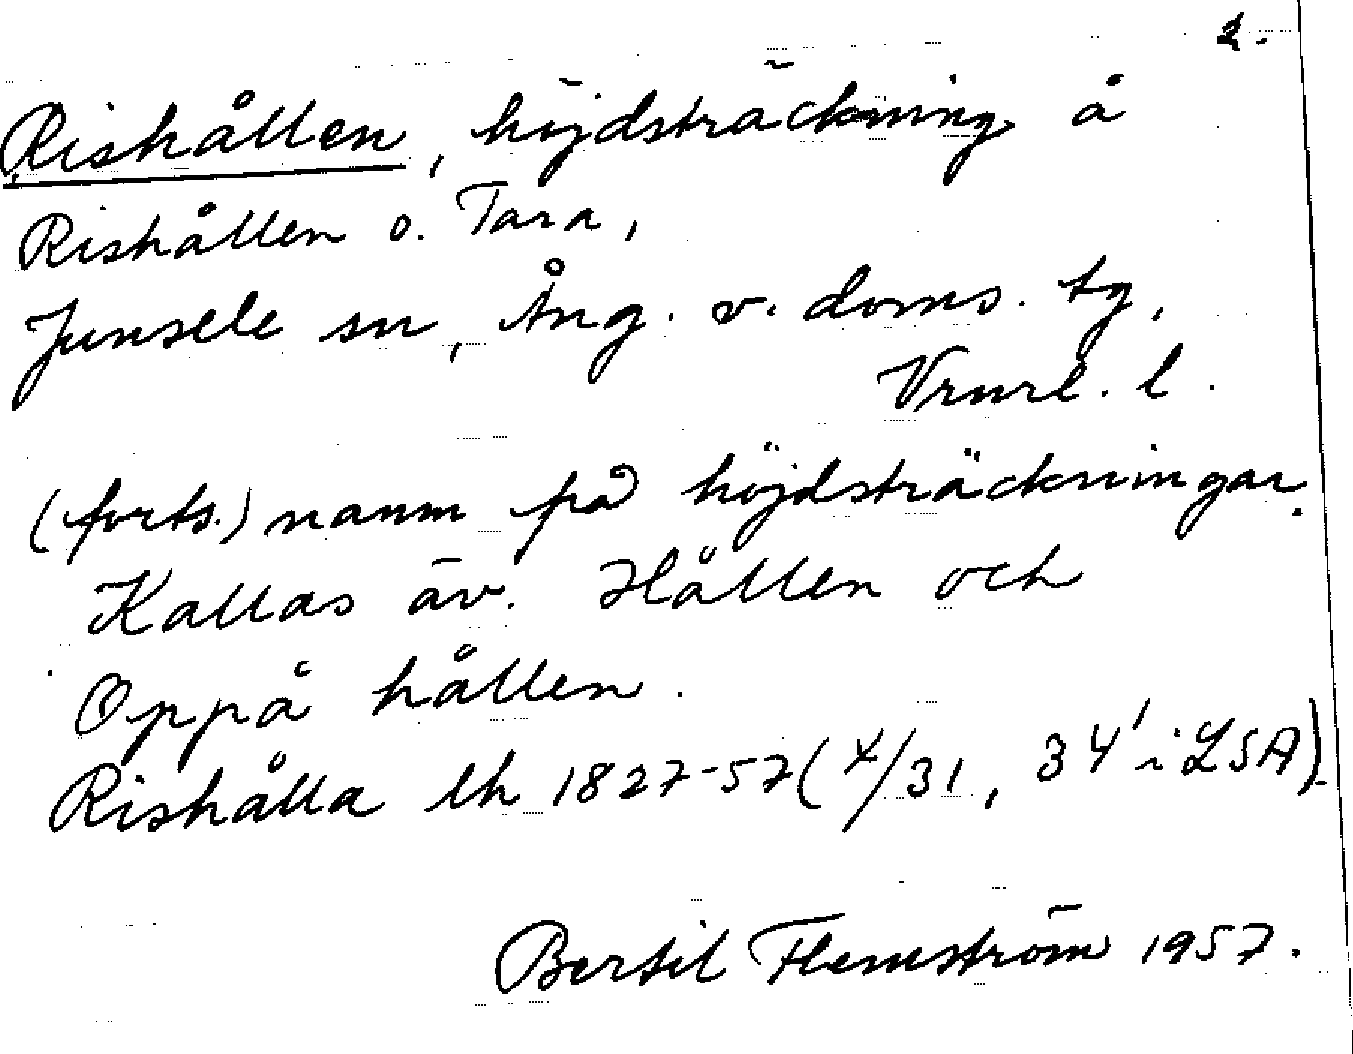 2.
Rishållen, höjdsträckning å
Rishållen o. Tara,
Junsele sn, Ång. v. doms. tg,
Vrnrl. l.
(forts.) namn på höjdsträckningar.
Kallas äv. Hållen och
Oppå hållen.
Rishålla lh 1827-57 (4/31, 34' i LSA).
Bertil Flemström 1957.